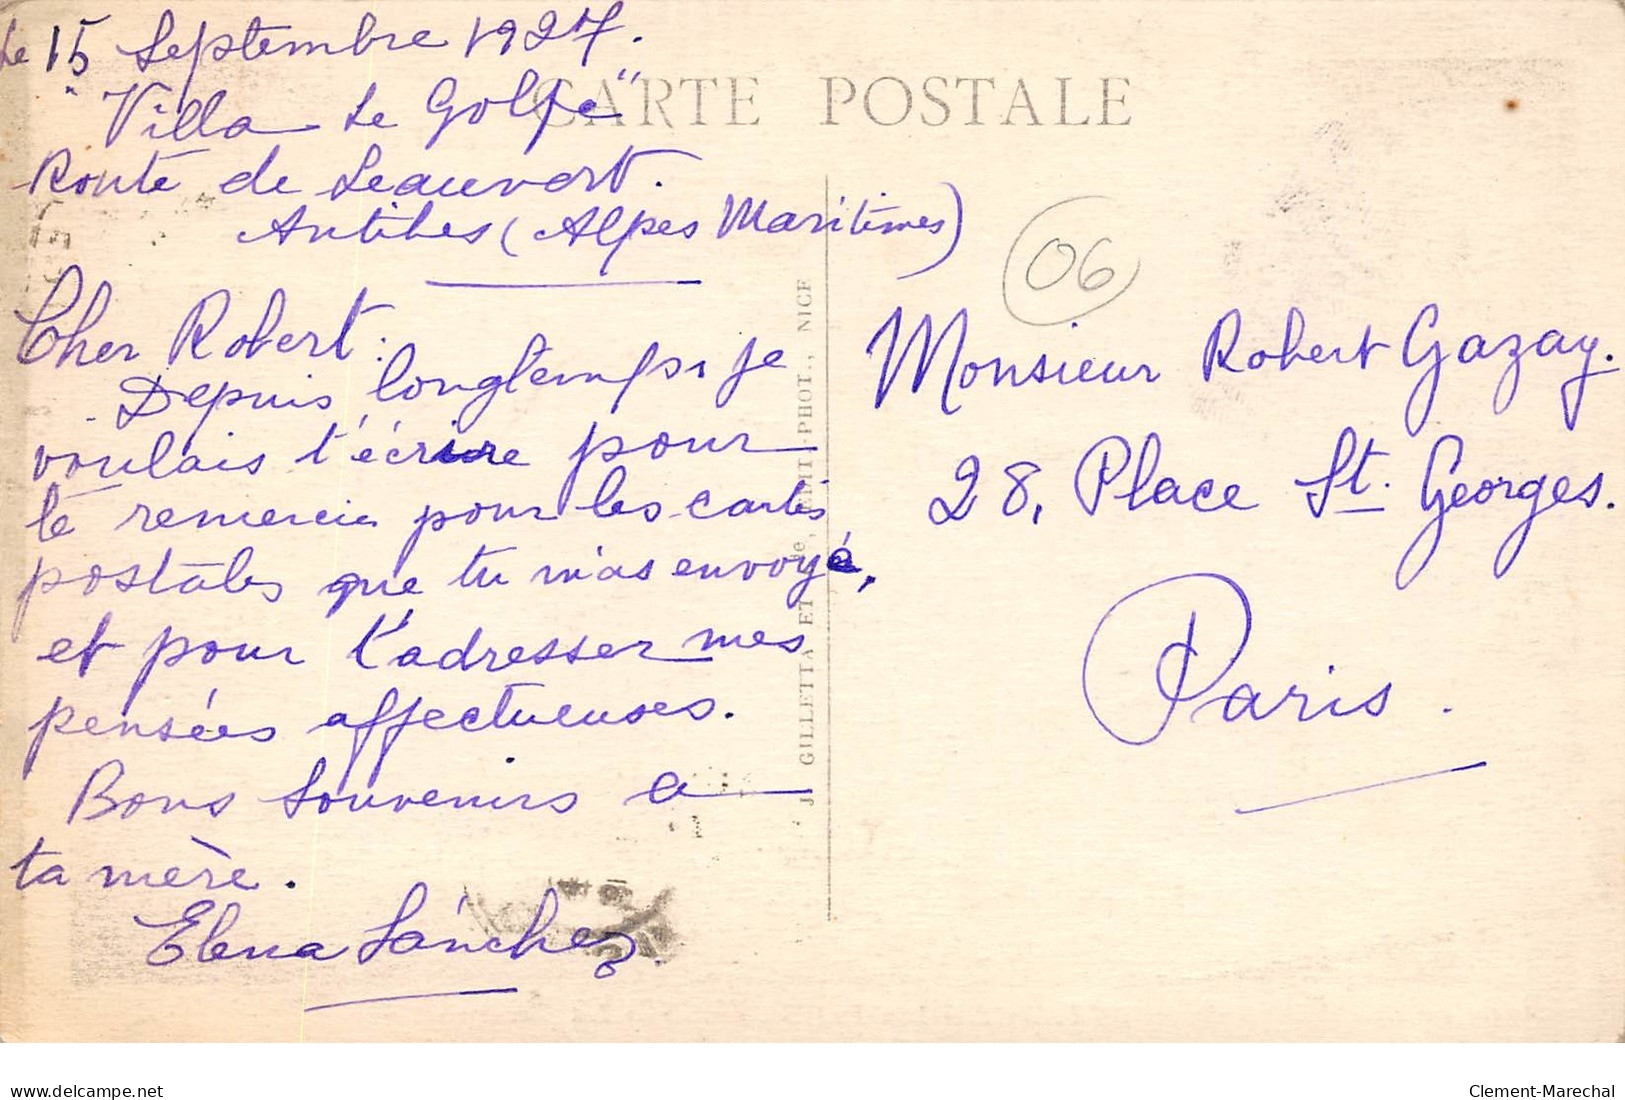 le 15 Septembre 1927.
"Villa Le Golfe"
CARTE POSTALE
Route de Leauvert.
Antibes (Alpes Maritimes)
06
Cher Robert:
Depuis longtemps je
voulais t'écrire pour
te remercier pour les cartes
postales que tu m'as envoyé,
et pour t'adresser mes
pensées affectueuses.
Bons souvenirs a
ta mère.
Elena Sánchez.
J. GILLETTA ET Cie, EDIT-PHOT., NICE
Monsieur Robert Gazay.
28, Place St. Georges.
Paris.
delcampe.net
Clement-Marechal